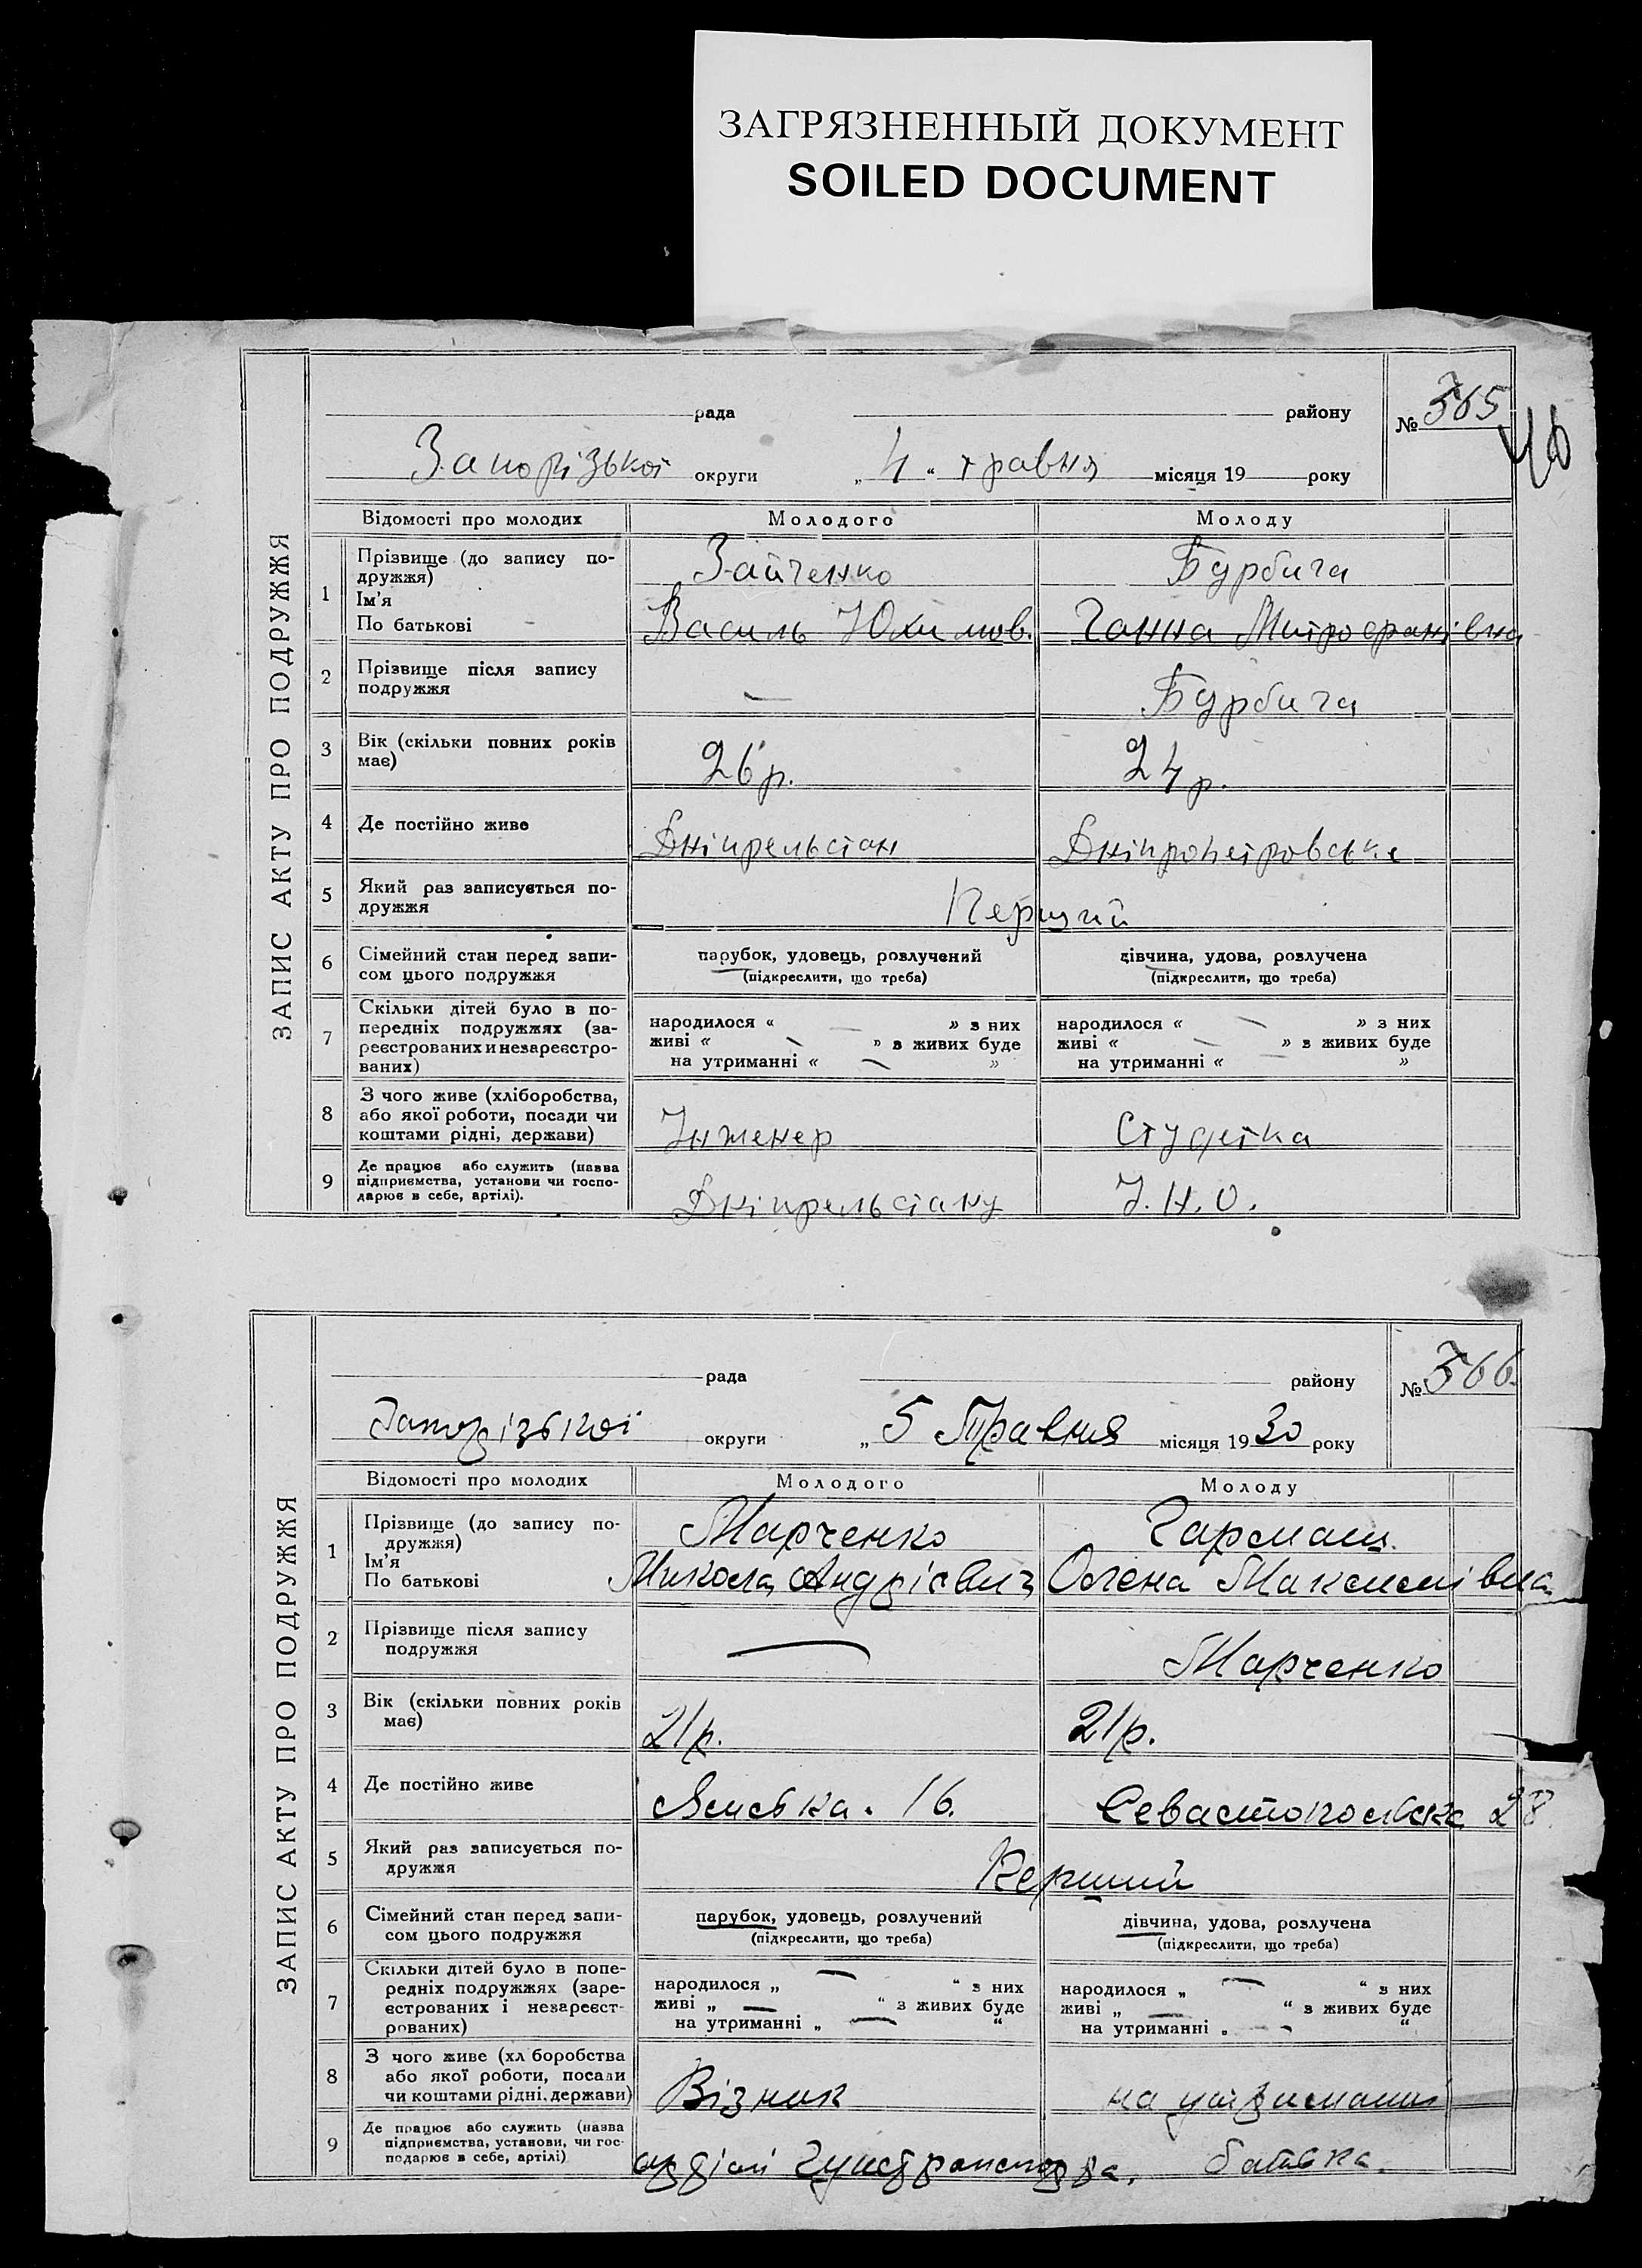 ЗАГРЯЗНЕННЫЙ ДОКУМЕНТ
SOILED DOCUMENT
ЗАПИС АКТУ ПРО ПОДРУЖЖЯ
рада району № 365
46
Запорізької округи „ 4 “ травня місяця 19 року
Відомості про молодих Молодого Молоду
1 Прізвище (до запису по-
дружжя) Зайченко Бурбига
Ім'я
По батькові Василь Юхимов. Ганна Митрофанівна
2 Прізвище після запису
подружжя — Бурбига
3 Вік (скільки повних років
має) 26 р. 24 р.
4 Де постійно живе Дніпрельстан Дніпропетровське
5 Який раз записується по-
дружжя Перший
6 Сімейний стан перед запи-
сом цього подружжя
парубок, удовець, розлучений дівчина, удова, розлучена
(підкреслити, що треба) (підкреслити, що треба)
7 Скільки дітей було в по-
передніх подружжях (за-
реєстрованих и незареєстро-
ваних)
народилося « — » з них народилося « — » з них
живі « — » з живих буде живі « — » з живих буде
на утриманні « — » на утриманні « — »
8 З чого живе (хліборобства,
або якої роботи, посади чи
коштами рідні, держави) Інженер Студетка
9 Де працює або служить (назва
підприємства, установи чи госпо-
дарює в себе, артілі). Дніпрельстану І.Н.О.
ЗАПИС АКТУ ПРО ПОДРУЖЖЯ
рада району № 366
Запорізької округи „ 5 Травня місяця 1930 року
Відомості про молодих Молодого Молоду
1 Прізвище (до запису по-
дружжя) Марченко Гармаш
Ім'я
По батькові Микола Андрієвич Олена Максимівна
2 Прізвище після запису
подружжя — Марченко
3 Вік (скільки повних років
має) 21 р. 21 р.
4 Де постійно живе Ямська. 16. Севастопольска 28
5 Який раз записується по-
дружжя Перший
6 Сімейний стан перед запи-
сом цього подружжя
парубок, удовець, розлучений дівчина, удова, розлучена
(підкреслити, що треба) (підкреслити, що треба)
7 Скільки дітей було в попе-
редніх подружжях (заре-
єстрованих і незареєст-
рованих)
народилося „ — “ з них народилося „ — “ з них
живі „ — “ з живих буде живі „ — “ з живих буде
на утриманні „ — “ на утриманні „ — “
8 З чого живе (хл боробства
або якої роботи, посади
чи коштами рідні, держави) Візник на утриманні
9 Де працює або служить (назва
підприємства, установи, чи гос-
подарює в себе, артілі) артілі батька.